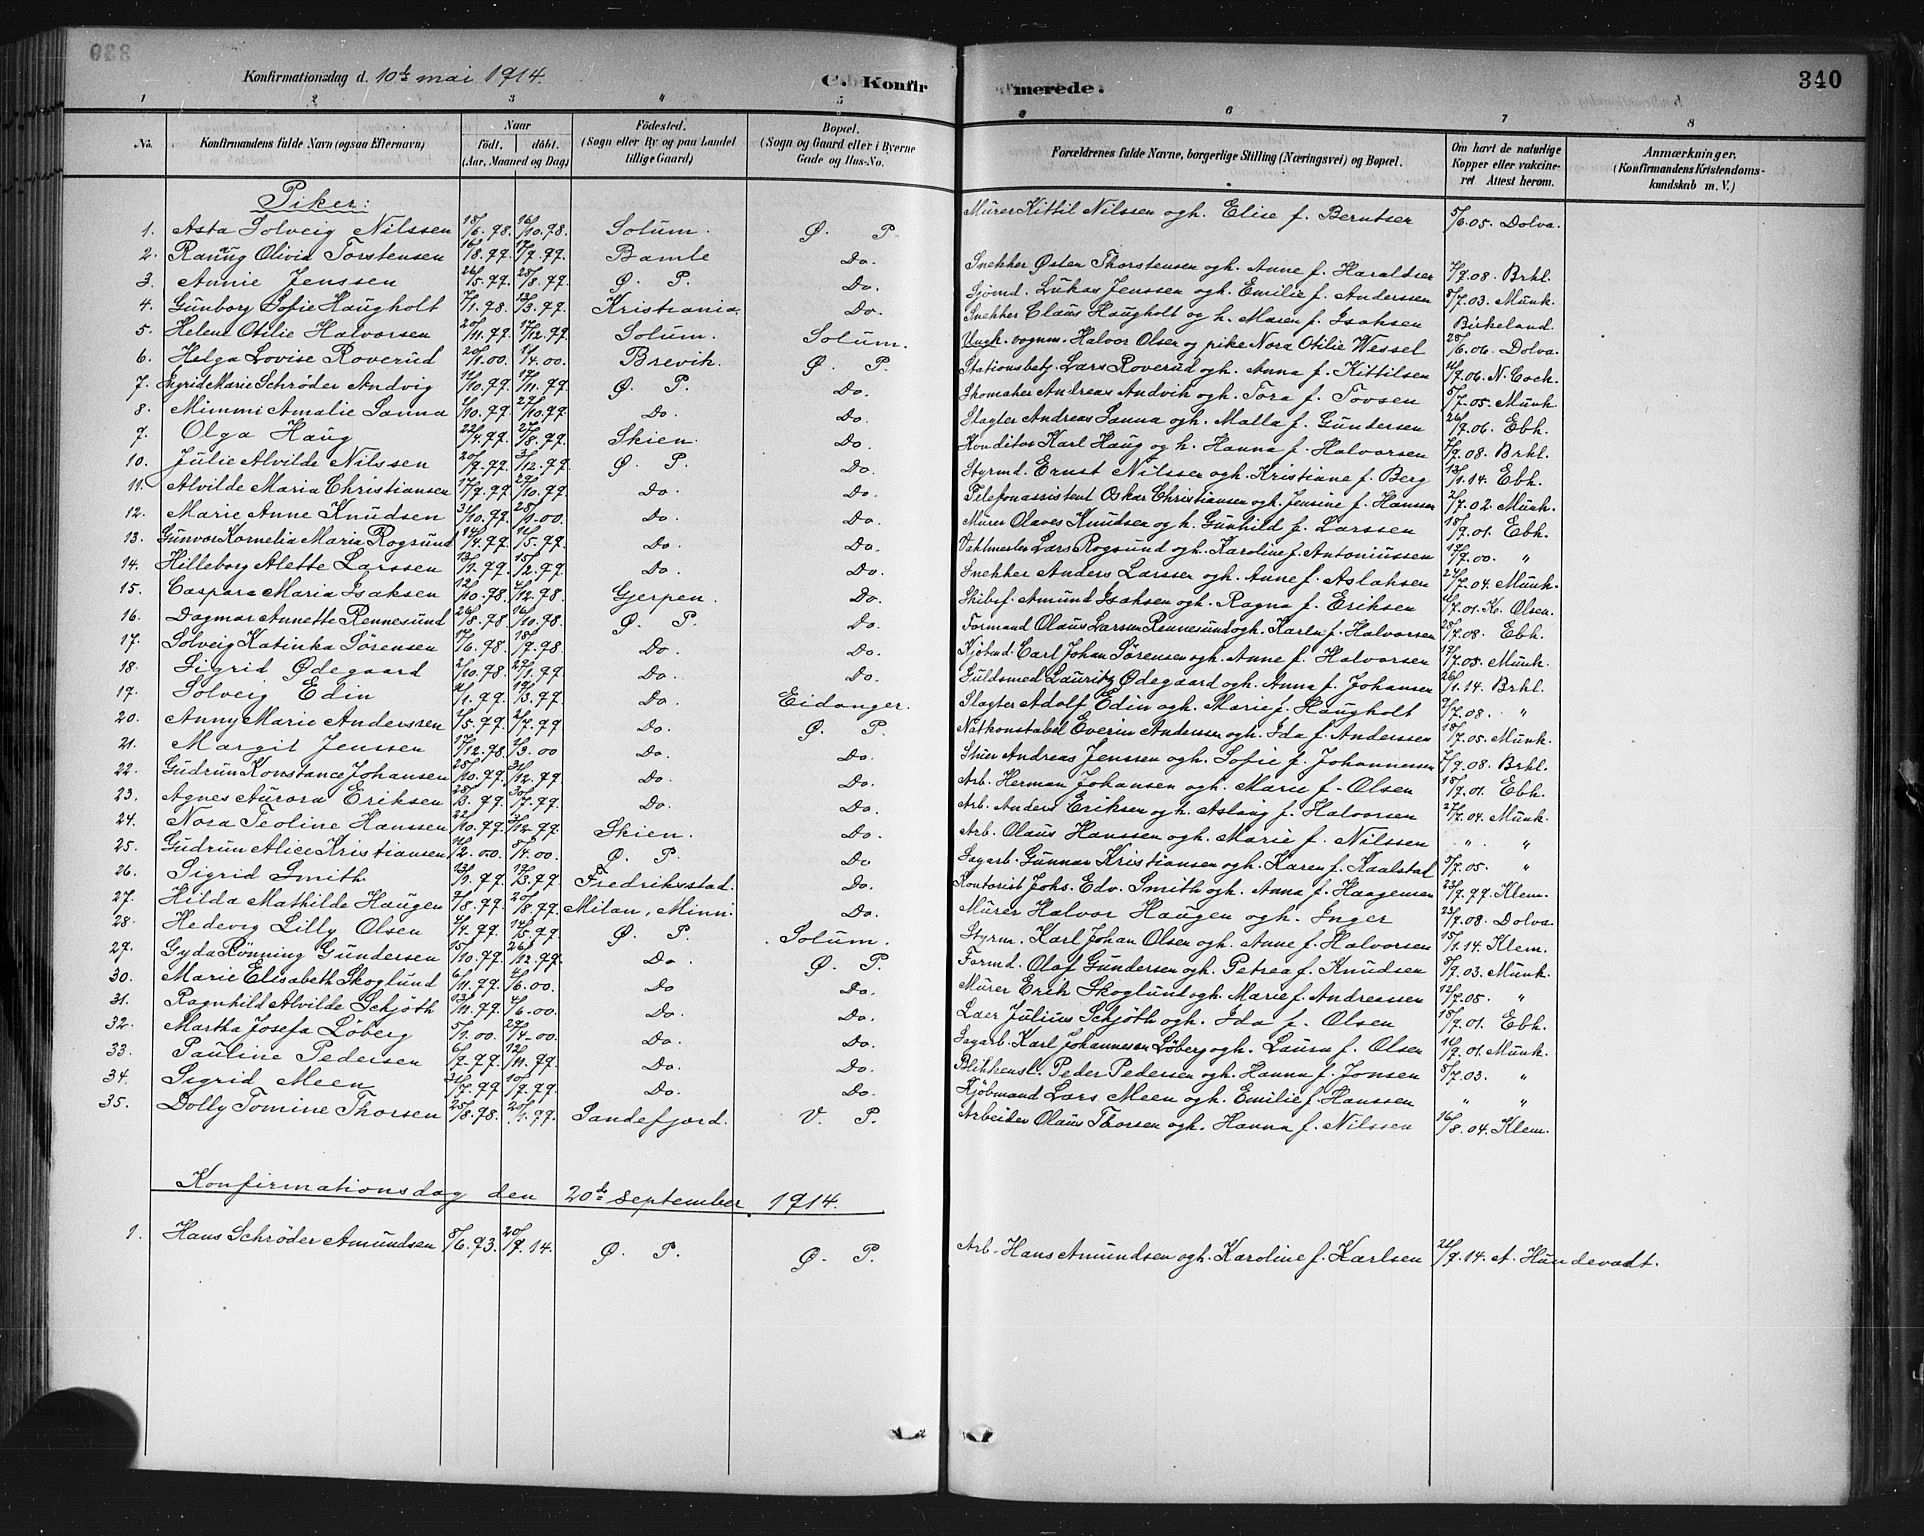 Konfirmationsdag d. 10de mai 1914.
C. Konfirmerede.
340
1 2 3 4 5 6 7 8
No.
Konfirmandens fulde Navn (ogsaa Efternavn)
Naar
födt. döbt.
(Aar, Maaned og Dag)
Födested.
(Sogn eller By og paa Landet
tillige Gaard)
Bopæl.
(Sogn og Gaard eller i Byerne
Gade og Hus-No.
Forældrenes fulde Navne, borgerlige Stilling (Næringsvei) og Bopæl.
Om havt de naturlige
Kopper eller vakcine-
ret Attest herom.
Anmærkninger.
(Konfirmandens Kristendoms-
kundskab m. V.)
Piker:
1. Asta Solveig Nilssen 18/6.98. 16/10.98. Solum. Ø. P. Murer Kittil Nilssen og h. Elise f. Berntsen 5/6.05. Dolva.
2. Ranaug Olivia Torstensen 16/8.99. 17/9.99. Bamle Do. Snekker Østen Thorstensen og h. Anne f. Haraldsen 7/9.08. Brkl.
3. Annie Jenssen 26/5.99. 28/8.99. Ø. P. Do. Sjømd. Lukas Jenssen og h. Emilie f. Anderssen 8/7.03. Munk.
4. Gunborg Sofie Haugholt 7/11.98. 13/3.99. Kristiania. Do. Snekker Claus Haugholt og h. Maren f. Isaksen Birkeland.
5. Helene Otilie Halvorsen 20/11.99. 17/12.99. Solum. Solum. Ungk. vognm. Halvor Olsen og pike Nora Otilie Wessel 28/6.06. Dolva.
6. Helga Lovise Roverud 20/1.00. Brevik. Ø. P. Stationsbetj. Lars Roverud og h. Anna f. Kittilsen N. Coch.
7. Ingrid Marie Schrøder Andvig Ø. P. Do. Skomaker Andreas Andvik og h. Tora f. Tovsen 5/7.05. Munk.
8. Mimmi Amalie Sanna Do. Do. Slagter Andreas Sanna og h. Malla f. Gundersen 26/9.06. Ebh.
9. Olga Haug 22/4.99. 27/8.99. Skien. Do. Konditor Karl Haug og h. Hanna f. Halvorsen 7/9.08. Brkl.
10. Julie Alvilde Nilssen 20/9.99. 3/12.99. Ø. P. Do. Styrmd. Ernst Nilssen og h. Kristiane f. Berg 13/1.14. Ebh.
11. Alvilde Maria Christiansen 17/9.99. 29/10.99. Do. Do. Telefonassistent Oskar Christiansen og h. Jensine f. Hanssen 2/7.02. Munk.
12. Marie Anne Knudsen 31/10.99. 28/1.00. Do. Do. Murer Olaves Knudsen og h. Gunhild f. Larssen 18/9.01. Ebh.
13. Gunvor Kornelia Maria Rogsund Do. Do. Vaktmester Lars Rogsund og h. Karoline f. Antoniussen 19/9.00. "
14. Hilleborg Alette Larssen Do. Do. Snekker Anders Larssen og h. Anne f. Aslaksen 24/7.04. Munk.
15. Caspara Maria Isaksen 12/10.98. 4/12.98. Gjerpen. Do. Skibsf. Amund Isaksen og h. Ragna f. Eriksen Kr. Olsen.
16. Dagmar Annette Rennesund 26/8.98. 16/10.98. Ø. P. Do. Formand Olaus Larsen Rennesund og h. Karen f. Halvorsen 28/7.08. Ebh.
17. Solveig Katinka Sørensen 17/6.98. 18/9.98 Do. Do. Kjøbmd. Carl Johan Sørensen og h. Anne f. Halvorsen 19/7.05. Munk.
18. Sigrid Ødegaard 2/10.98. 29/1.99. Do. Do. Guldsmed Lauritz Ødegaard og h. Anna f. Johansen 26/1.14. Brkl.
19. Solveig Edin Do. Eidanger. Slagter Adolf Edin og h. Marie f. Haugholt 9/7.08. "
20. Anny Marie Anderssen Do. Ø. P. Natkonstabel Everin Anderssen og h. Ida f. Anderssen 18/7.05. Munk.
21. Margit Jenssen Do. Do. Stuer Andreas Jenssen og h. Sofie f. Johannessen 7/9.08. Brkl.
22. Gudrun Konstance Johansen Do. Do. Arb. Herman Johansen og h. Marie f. Olsen 18/9.01. Ebh.
23. Agnes Aurora Eriksen Do. Do. Arb. Anders Eriksen og h. Aslaug f. Halvorsen 27/7.04. Munk.
24. Nora Teoline Hanssen 22/10.99. 3/12.99. Skien. Do. Arb. Olaus Hanssen og h. Marie f. Nilssen " "
25. Gudrun Alice Kristiansen Ø. P. Do Sagarb. Gunnar Kristiansen og h. Karen f. Kaalstad 5/7.05. "
26. Sigrid Smith Fredriksstad. Do. Kontorist Johs. Edv. Smith og h. Anna f. Haagensen 23/9.99. Klem.
27. Hilda Mathilde Haugen Milan, Minn. Do. Murer Halvor Haugen og h. Inger 23/9.08. Dolva.
28. Hedevig Lilly Olsen Ø. P. Solum. Styrm. Karl Johan Olsen og h. Anne f. Halvorsen 15/1.14. Klem.
29. Gyda Rønning Gundersen 15/10.99. 26/12.99. Do. Ø. P. Formd. Olaf Gundersen og h. Petrea f. Knudsen 8/9.03. Munk.
30. Marie Elisabeth Skoglund 6/11.99. 4/6.00. Do Do. Murer Erik Skoglund og h. Marie f. Andreassen 12/7.05. "
31. Ragnhild Alvilde Schjøth 13/11.99. 4/6.00. Do. Do. Laer Julius Schjøth og h. Ida f. Olsen 18/9.01. Ebh.
32. Martha Josefa Løberg Do. Do. Sagarb. Karl Johannessen Løberg og h. Laura f. Olsen Munk.
33. Pauline Pedersen 6/9.99. 12/11.99. Do. Do. Blikkensl. Peder Pedersen og h. Hanna f. Jonsen 8/7.03. "
34. Sigrid Meen 31/7.99 10/9.99. Do. Do. Kjøbmand Lars Meen og h. Emilie f. Hanssen " "
35. Dolly Tomine Thorsen 25/8.98. Sandefjord. V. P. Arbeider Olaus Thorsen og h. Hanna f. Nilssen 16/8.04. Klem.
Konfirmationsdag den 20de september 1914.
1. Hans Schrøder Amundsen 8/6.93. 20/9.14. Ø. P. Ø. P. Arb. Hans Amundsen og h. Karoline f. Karlsen 21/9.14. A. Hundevadt.